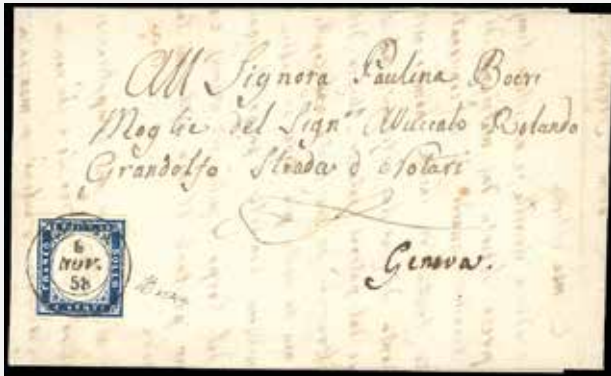 All Signora Paulina Boeri
Moglie del Sign.re Avvocato Rolando
Grandolfo Strada d Notari
Genova.
6
NOV.
58
FRANCO
BOLLO